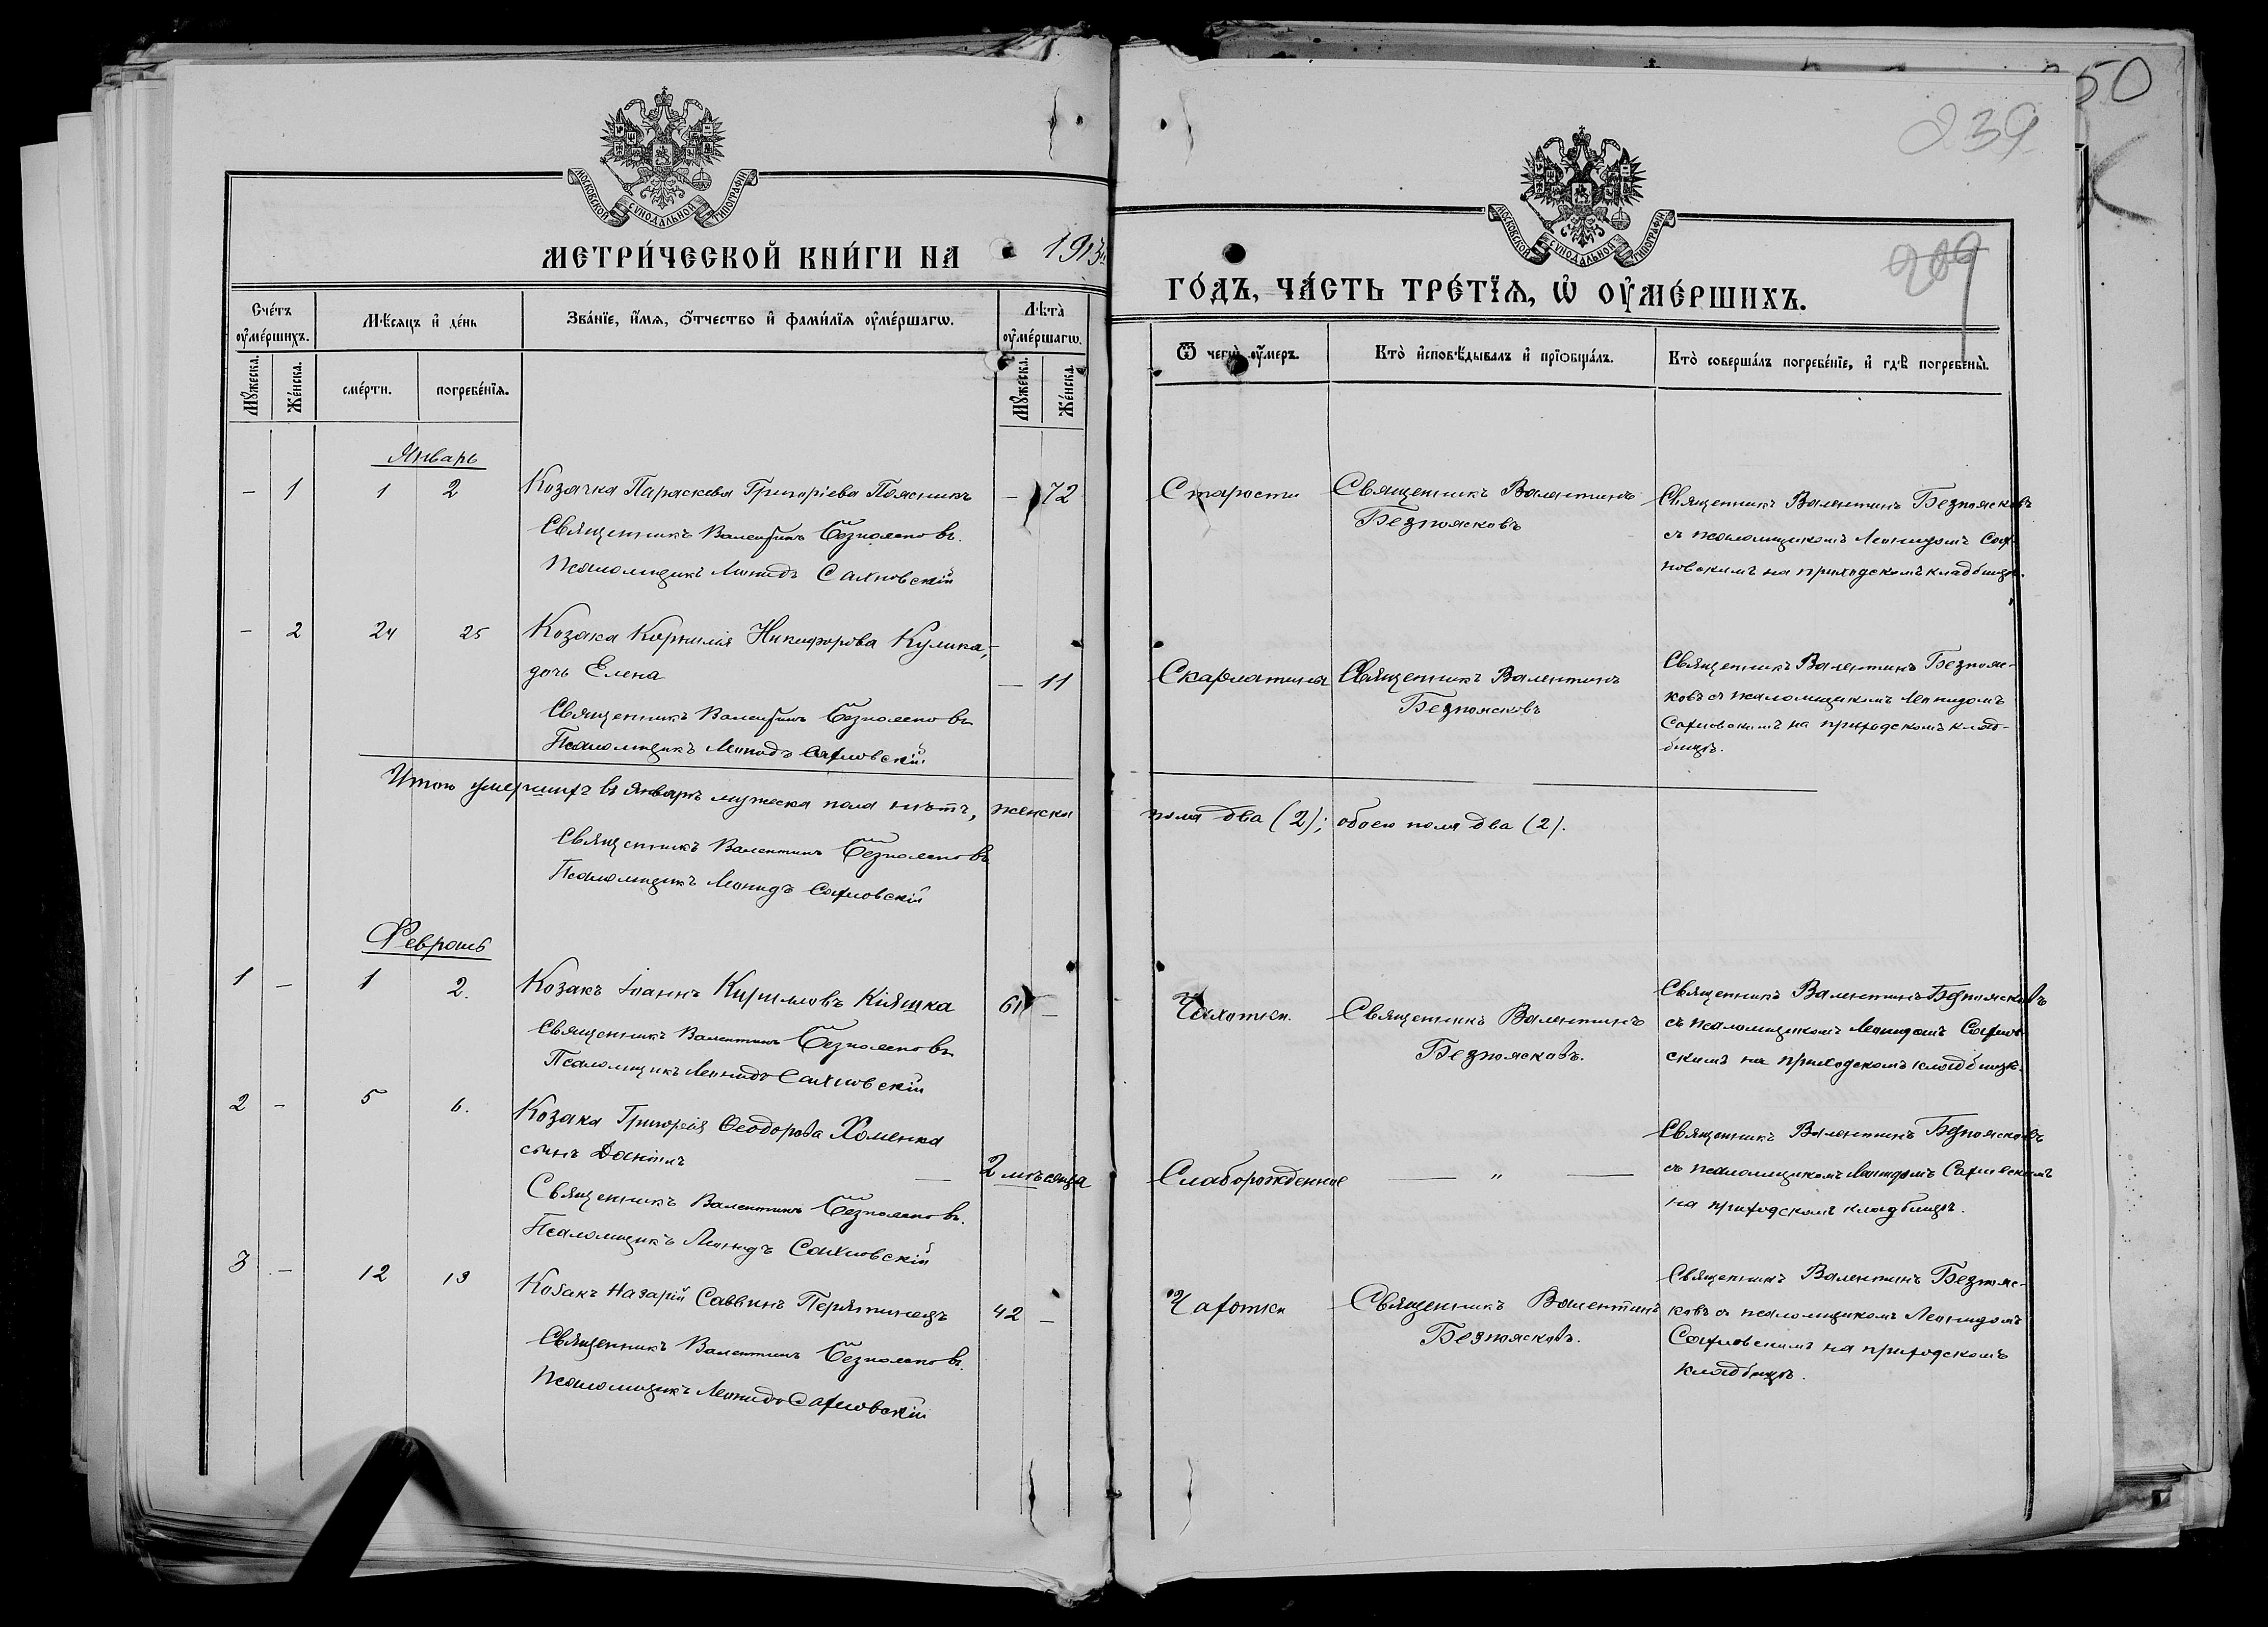 50
239
209
МОСКОВСКОЙ СѴНОДАЛЬНОЙ ТИПОГРАФІИ
МОСКОВСКОЙ СѴНОДАЛЬНОЙ ТИПОГРАФІИ
МЕТРИ́ЧЕСКОЙ КНИ́ГИ НА 1913й
ГО́ДЪ, ЧА́СТЬ ТРЕ́ТЇѦ, Ѡ҆ ОУ҆МЕ́РШИХЪ.
Сче́тъ оу҆ме́ршихъ.
Мѣ́сяцъ и҆ де́нь
Зва́нїе, и҆́мѧ, ѻ҆́тчество и҆ фами́лїѧ оу҆ме́ршагѡ.
Лѣ̀та оу҆ме́ршагѡ.
Ѿ чегѡ̀ оу҆́меръ.
Кто̀ и҆сповѣ́дывалъ и҆ прїѡбща́лъ.
Кто̀ соверша́лъ погребе́нїе, и҆ гдѣ̀ погребены̀.
Мꙋ́жеска.
Же́нска.
сме́рти.
погребе́нїѧ.
Мꙋ́жеска.
Же́нска.
Январь
- 1 1 2 Козачка Параскева Григоріева Поясникъ - 72
Священникъ Валентинъ Безпоясковъ.
Псаломщикъ Леонидъ Сахновскій
Старости
Священникъ Валентинъ
Безпоясковъ
Священникъ Валентинъ Безпоясковъ
съ псаломщикомъ Леонидомъ Сах-
новскимъ на приходскомъ кладбищѣ.
- 2 24 25 Козака Корнилія Никифорова Кулика,
дочь Елена - 11
Священникъ Валентинъ Безпоясковъ
Псаломщикъ Леонидъ Сахновскій
Скарлатины
Священникъ Валентинъ
Безпоясковъ
Священникъ Валентинъ Безпояс-
ковъ съ псаломщикомъ Леонидомъ
Сахновскимъ на приходскомъ клад-
бищѣ.
Итого умершихъ въ Январѣ мужеска пола нѣтъ, женска
пола два (2); обоего пола два (2).
Священникъ Валентинъ Безпоясковъ
Псаломщикъ Леонидъ Сахновскій
Февраль
1 - 1 2. Козакъ Іоаннъ Кирилловъ Кіяшка 61 -
Священникъ Валентинъ Безпоясковъ
Псаломщикъ Леонидъ Сахновскій
Чахотки.
Священникъ Валентинъ
Безпоясковъ.
Священникъ Валентинъ Безпоясковъ
съ псаломщикомъ Леонидомъ Сахнов-
скимъ на приходскомъ кладбищѣ.
2 - 5 6. Козака Григорія Ѳеодорова Хоменка
сынъ Даніилъ - 2 мѣсяца
Священникъ Валентинъ Безпоясковъ.
Псаломщикъ Леонидъ Сахновскій
Слаборожденное
— " —
Священникъ Валентинъ Безпоясковъ
съ псаломщикомъ Леонидомъ Сахновскимъ
на приходскомъ кладбищѣ.
3 - 12 13 Козакъ Назарій Саввинъ Перятинецъ 42 -
Священникъ Валентинъ Безпоясковъ.
Псаломщикъ Леонидъ Сахновскій
Чахотки
Священникъ Валентинъ
Безпоясковъ.
Священникъ Валентинъ Безпояс-
ковъ съ псаломщикомъ Леонидомъ
Сахновскимъ на приходскомъ
кладбищѣ.